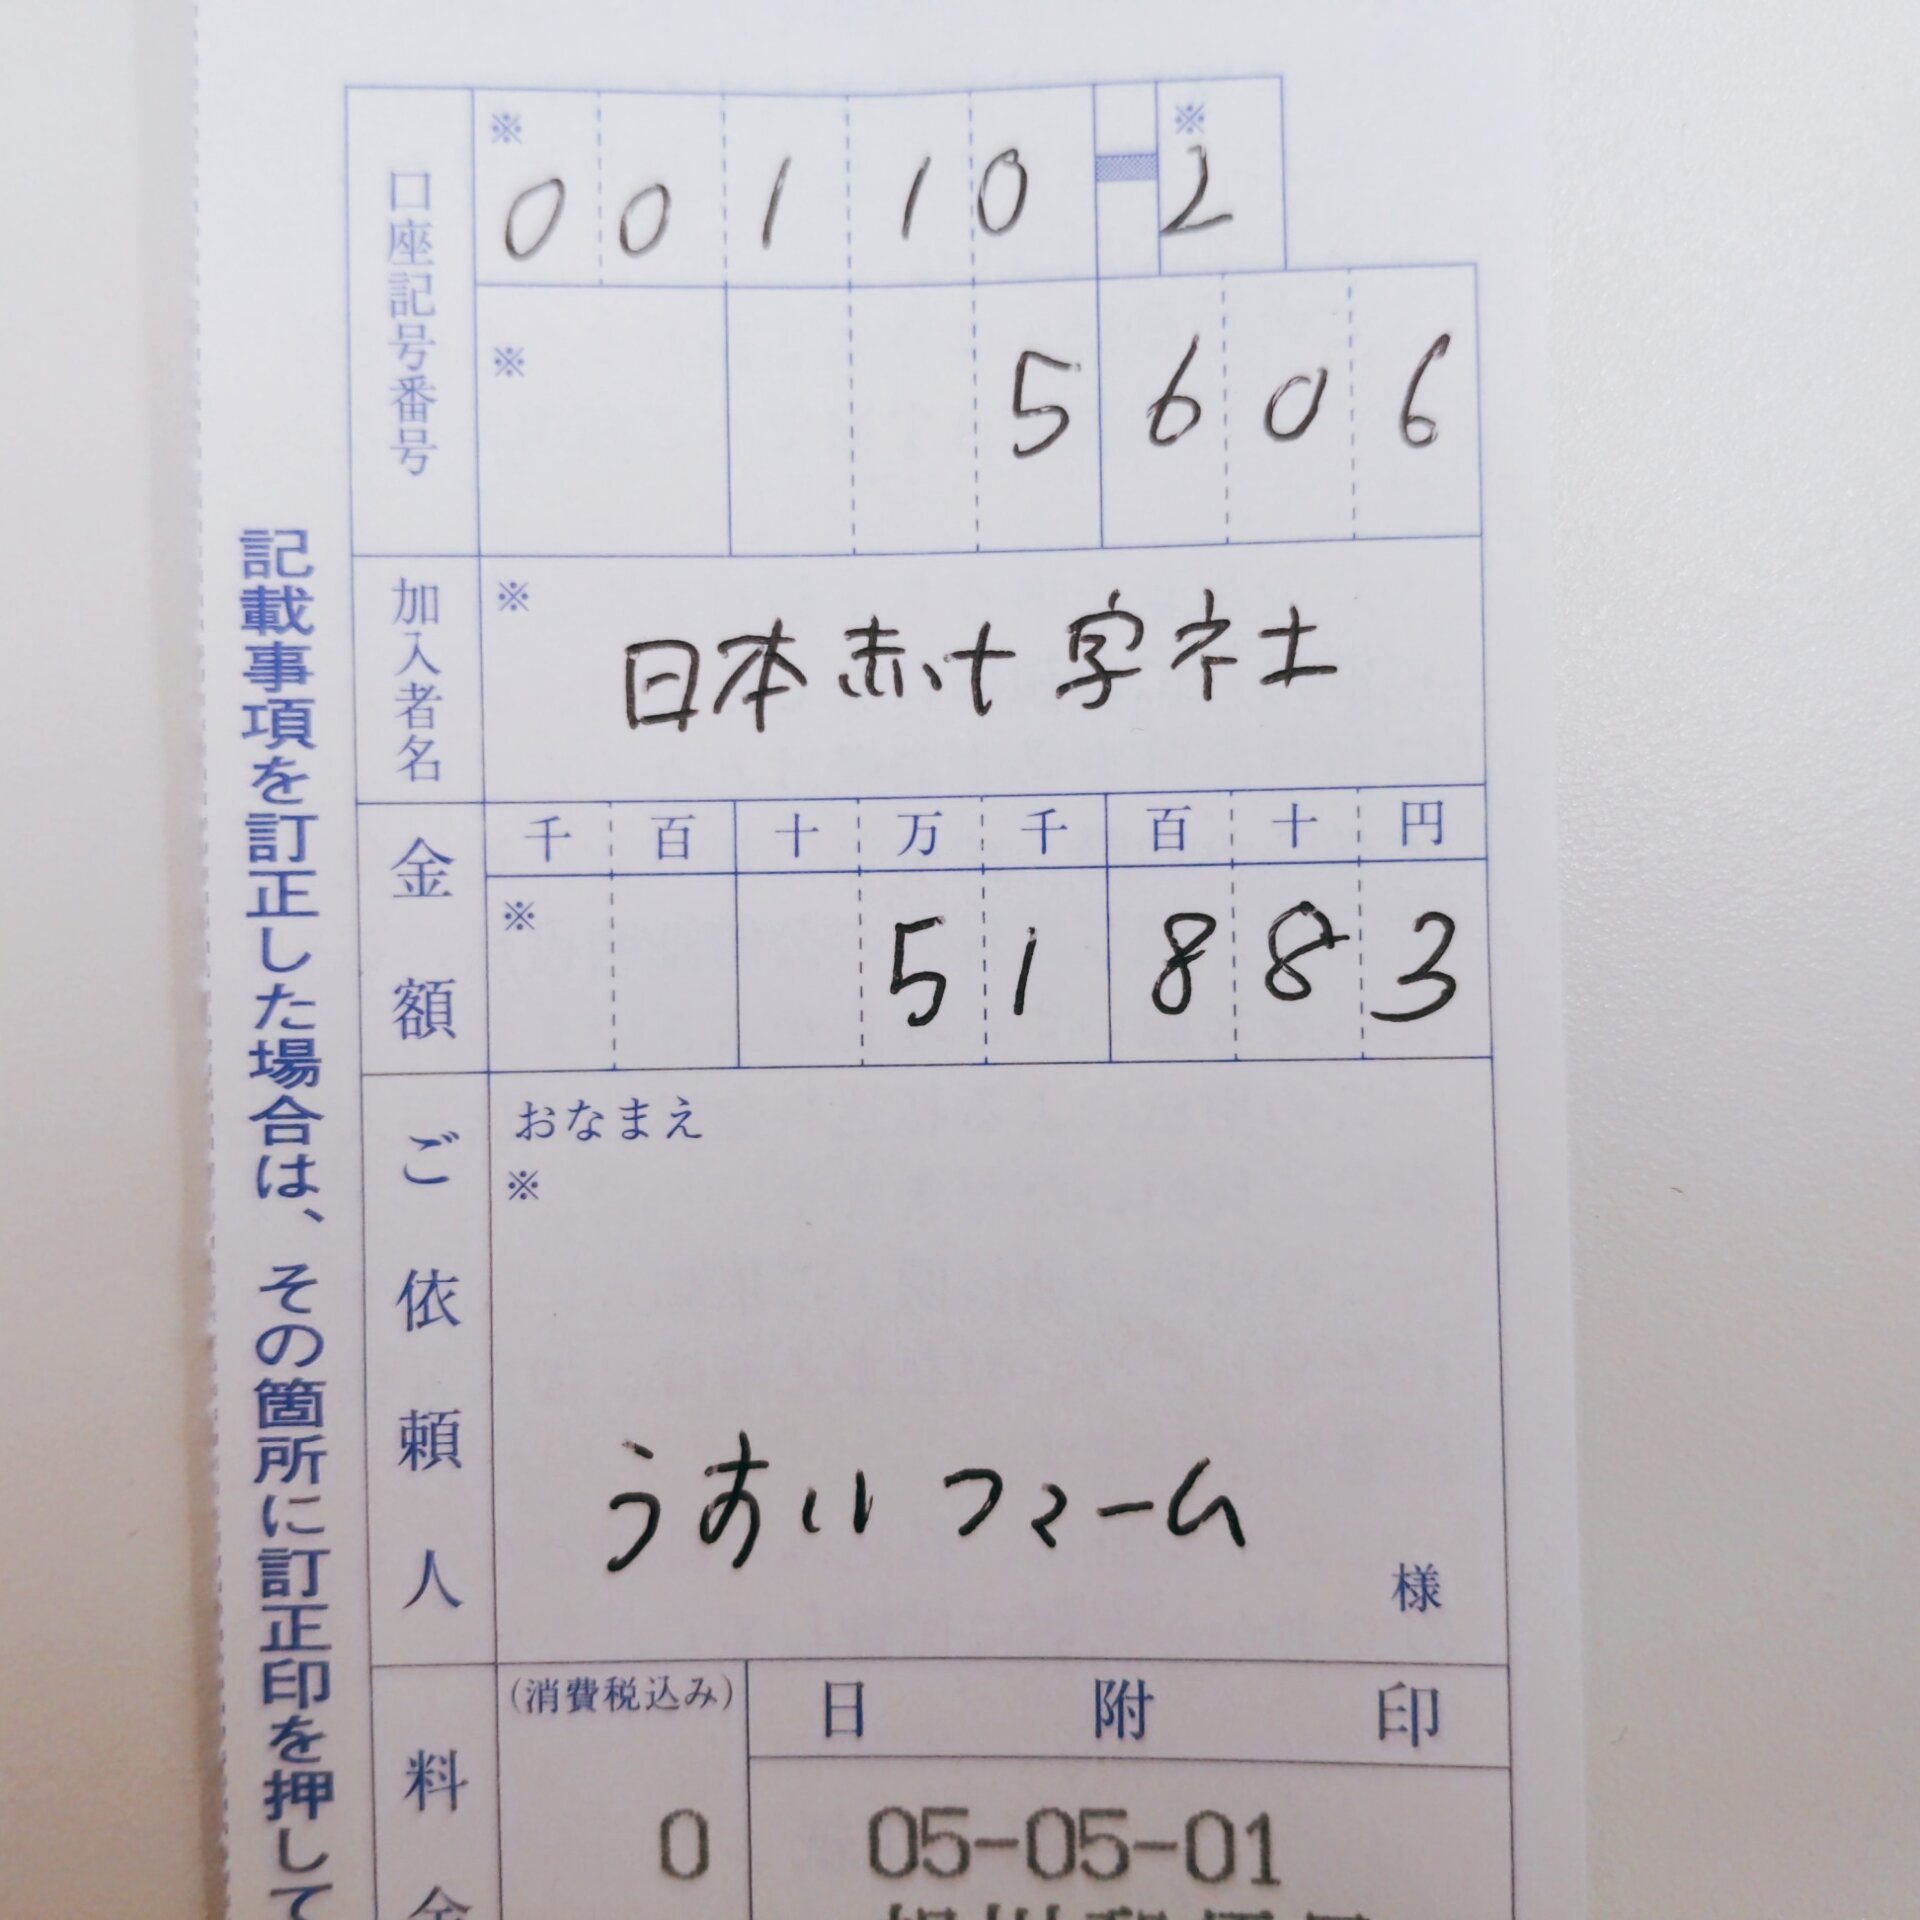 口座記号番号
※ 0 0 1 1 0 - ※ 2
※ 5 6 0 6
加入者名
※ 日本赤十字社
金額
千 百 十 万 千 百 十 円
※ 5 1 8 8 3
ご依頼人
おなまえ
※
うすいファーム
様
料金
(消費税込み)
0
日附印
05-05-01
記載事項を訂正した場合は、その箇所に訂正印を押して